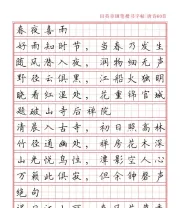 田英章硬笔楷书字帖/唐诗80首
春夜喜雨
好雨知时节，当春乃发生
随风潜入夜，润物细无声
野径云俱黑，江船火独明
晓看红湿处，花重锦官城
题破山寺后禅院
清晨入古寺，初日照高林
竹径通幽处，禅房花木深
山光悦鸟性，潭影空人心
万籁此俱寂，但余钟磬声
绝句